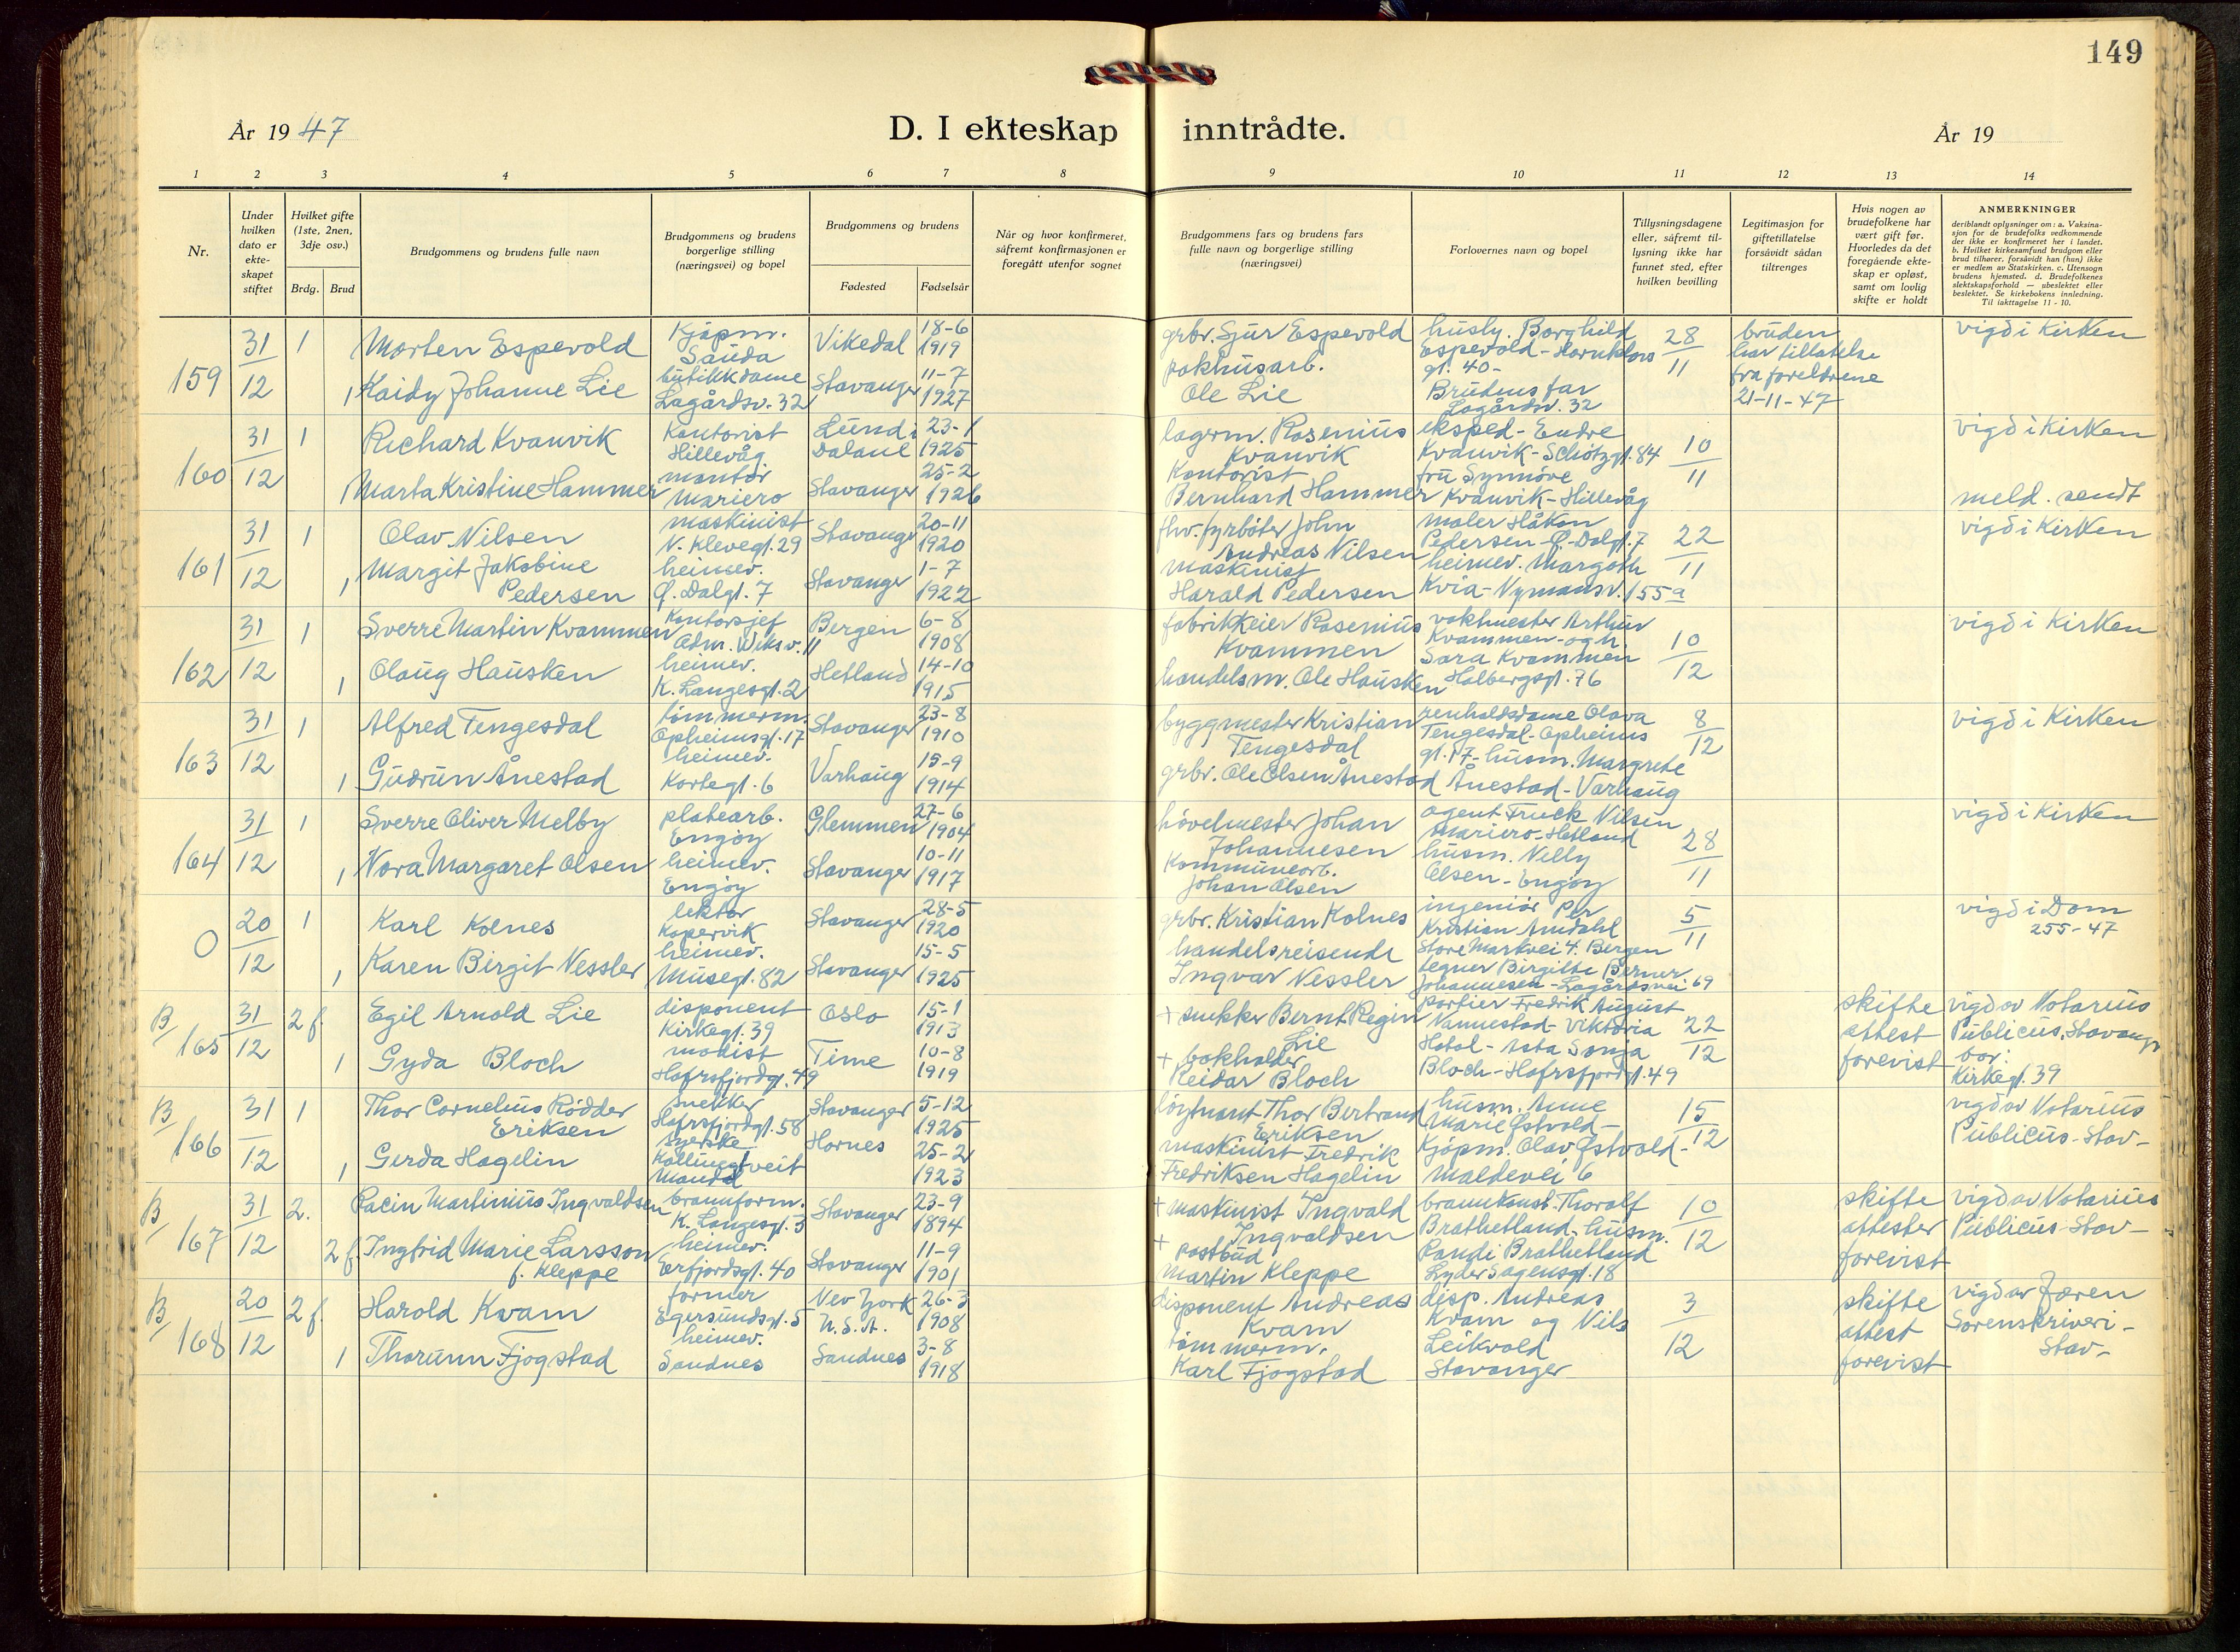 149
År 19 47
D. I ekteskap inntrådte.
År 19
1 2 3 4 5 6 7 8 9 10 11 12 13 14
Nr.
Under hvilken dato er ekte-skapet stiftet
Hvilket gifte (1ste, 2nen, 3dje osv.)
Brdg. Brud
Brudgommens og brudens fulle navn
Brudgommens og brudens borgerlige stilling (næringsvei) og bopel
Brudgommens og brudens
Fødested Fødselsår
Når og hvor konfirmeret, såfremt konfirmasjonen er foregått utenfor sognet
Brudgommens fars og brudens fars fulle navn og borgerlige stilling (næringsvei)
Forlovernes navn og bopel
Tillysningsdagene eller, såfremt til-lysning ikke har funnet sted, efter hvilken bevilling
Legitimasjon for giftetillatelse forsåvidt sådan tiltrenges
Hvis nogen av brudefolkene har vært gift før. Hvorledes da det foregående ekte-skap er opløst, samt om lovlig skifte er holdt
ANMERKNINGER
deriblandt oplysninger om: a. Vaksina-sjon for de brudefolks vedkommende der ikke er konfirmeret her i landet. b. Hvilket kirkesamfund brudgom eller brud tilhører, forsåvidt han (hun) ikke er medlem av Statskirken. c. Utensogn brudens hjemsted. d. Brudefolkenes slektskapsforhold — ubeslektet eller beslektet. Se kirkebokens innledning. Til iakttagelse 11 - 10.
159 31/12 1 Morten Espevold Kjøpm. Sauda Vikedal 18-6 1919 grbr. Sjur Espevold husly. Borghild Espevold - Hornklovs gt. 40 - 28/11 bruden har tillatelse fra foreldrene 21-11-47 vigd i Kirken
1 Kaidy Johanne Lie butikkdame Lagårdsv. 32 Stavanger 11-7 1927 pakhusarb. Ole Lie Brudens far Lagårdsv. 32
160 31/12 1 Richard Kvanvik Kontorist Hillevåg Lund i Dalane 23-1 1925 lagerm. Rosenius Kvanvik eksped - Endre Kvanvik - Schötzgt. 84 10/11 vigd i Kirken
1 Marta Kristine Hammer montør Mariero Stavanger 25-2 1926 Kontorist Bernhard Hammer fru Synnøve Kvanvik - Hillevåg meld. sendt
161 31/12 1 Olav Nilsen maskinist N. Klevegt. 29 Stavanger 20-11 1920 fhv. fyrbøter John Andreas Nilsen maler Håkon Pedersen - Ø. Dalgt. 7 22/11 vigd i Kirken
1 Margit Jakobine Pedersen heimev. Ø. Dalgt. 7 Stavanger 1-7 1922 maskinist Harald Pedersen heimev. Margoth Kvia - Nymansv. 155 a
162 31/12 1 Sverre Martin Kvammen Kontorsjef Adm. Wiksv. 11 Bergen 6-8 1908 fabrikkeier Rosenius Kvammen vaktmester Arthur Kvammen - og h. Sara Kvammen Holbergsgt. 76 10/12 vigd i Kirken
1 Olaug Hausken heimev. K. Langesgt. 2 Hetland 14-10 1915 handelsm. Ole Hausken
163 31/12 1 Alfred Tengesdal tømmerm. Opheimsgt. 17 Stavanger 23-8 1910 byggmester Kristian Tengesdal renholdsdame Olava Tengesdal - Opheims gt. 17 - husm. Margrete Ånestad - Varhaug 8/12 vigd i Kirken
1 Gudrun Ånestad heimev. Kortegt. 6 Varhaug 15-9 1914 grbr. Ole Olsen Ånestad
164 31/12 1 Sverre Oliver Melby platearb. Engøy Glemmen 27-6 1904 høvelmester Johan Johannesen agent Truck Nilsen Mariero - Hetland 28/11 vigd i Kirken
1 Nora Margaret Olsen heimev. Engøy Stavanger 10-11 1917 Kommunearb. Johan Olsen husm. Nelly Olsen - Engøy
0 20/12 1 Karl Kolnes lektor Kopervik Stavanger 28-5 1920 grbr. Kristian Kolnes ingeniør Per Kristian Amdahl Store Markvei 4. Bergen 5/11 vigd i Dom 255-47
1 Karen Birgit Vessler heimev. Musegt. 82 Stavanger 15-5 1925 handelsreisende Ingvar Vessler tegner Birgitte Berner Johannesen - Lagårdsvei 69
B/ 165 31/12 2 f. Egil Arnold Lie disponent Kirkegt. 39 Oslo 15-1 1913 + snekker Bernt Regin Lie portier Fredrik August Vannestad - Viktoria Hotel - Asta Sonja Bloch - Hafrsfjordgt. 49 22/12 skifte attest forevist vigd av Notarius Publicus, Stavanger bor: Kirkegt. 39
1 Gyda Bloch modist Hafrsfjordgt. 49 Time 10-8 1919 + bokholder Reidar Bloch
B/ 166 31/12 1 Thor Cornelius Rödder Eriksen snekker Hafrsfjordgt. 58 Stavanger 5-12 1925 løytnant Thor Bertrand Eriksen husm. Anne Marie Østvold - Kjøpm. Olav Østvold - Maldevei 6 15/12 vigd av Notarius Publicus - Stav -
1 Gerda Hagelin syerske Mandal Hornes 25-2 1923 maskinist Fredrik Fredriksen Hagelin
B/ 167 31/12 2. Pacin Martinius Ingvaldsen brannform. K. Langesgt. 5 Stavanger 23-9 1894 + maskinist Ingvald Ingvaldsen brannkonst. Thoralf Brathetland - husm. Randi Brathetland Lyder Sagensgt. 18 10/12 skifte attester forevist vigd av Notarius Publicus - Stav -
2 f. Ingfrid Marie Larsson f. Kleppe heimev. Erfjordsgt. 40 Stavanger 11-9 1901 + postbud Martin Kleppe
B/ 168 20/12 2 f. Harold Kvam former Egersundsgt. 5 Nev York U.S.A. 26-3 1908 disponent Andreas Kvam disp. Andreas Kvam og Nils Leikvold Stavanger - 3/12 skifte attest forevist vigd av Jæren Sorenskriveri - Stav -
1 Thorunn Fjogstad heimev. Sandnes Sandnes 3-8 1918 tømmerm. Karl Fjogstad